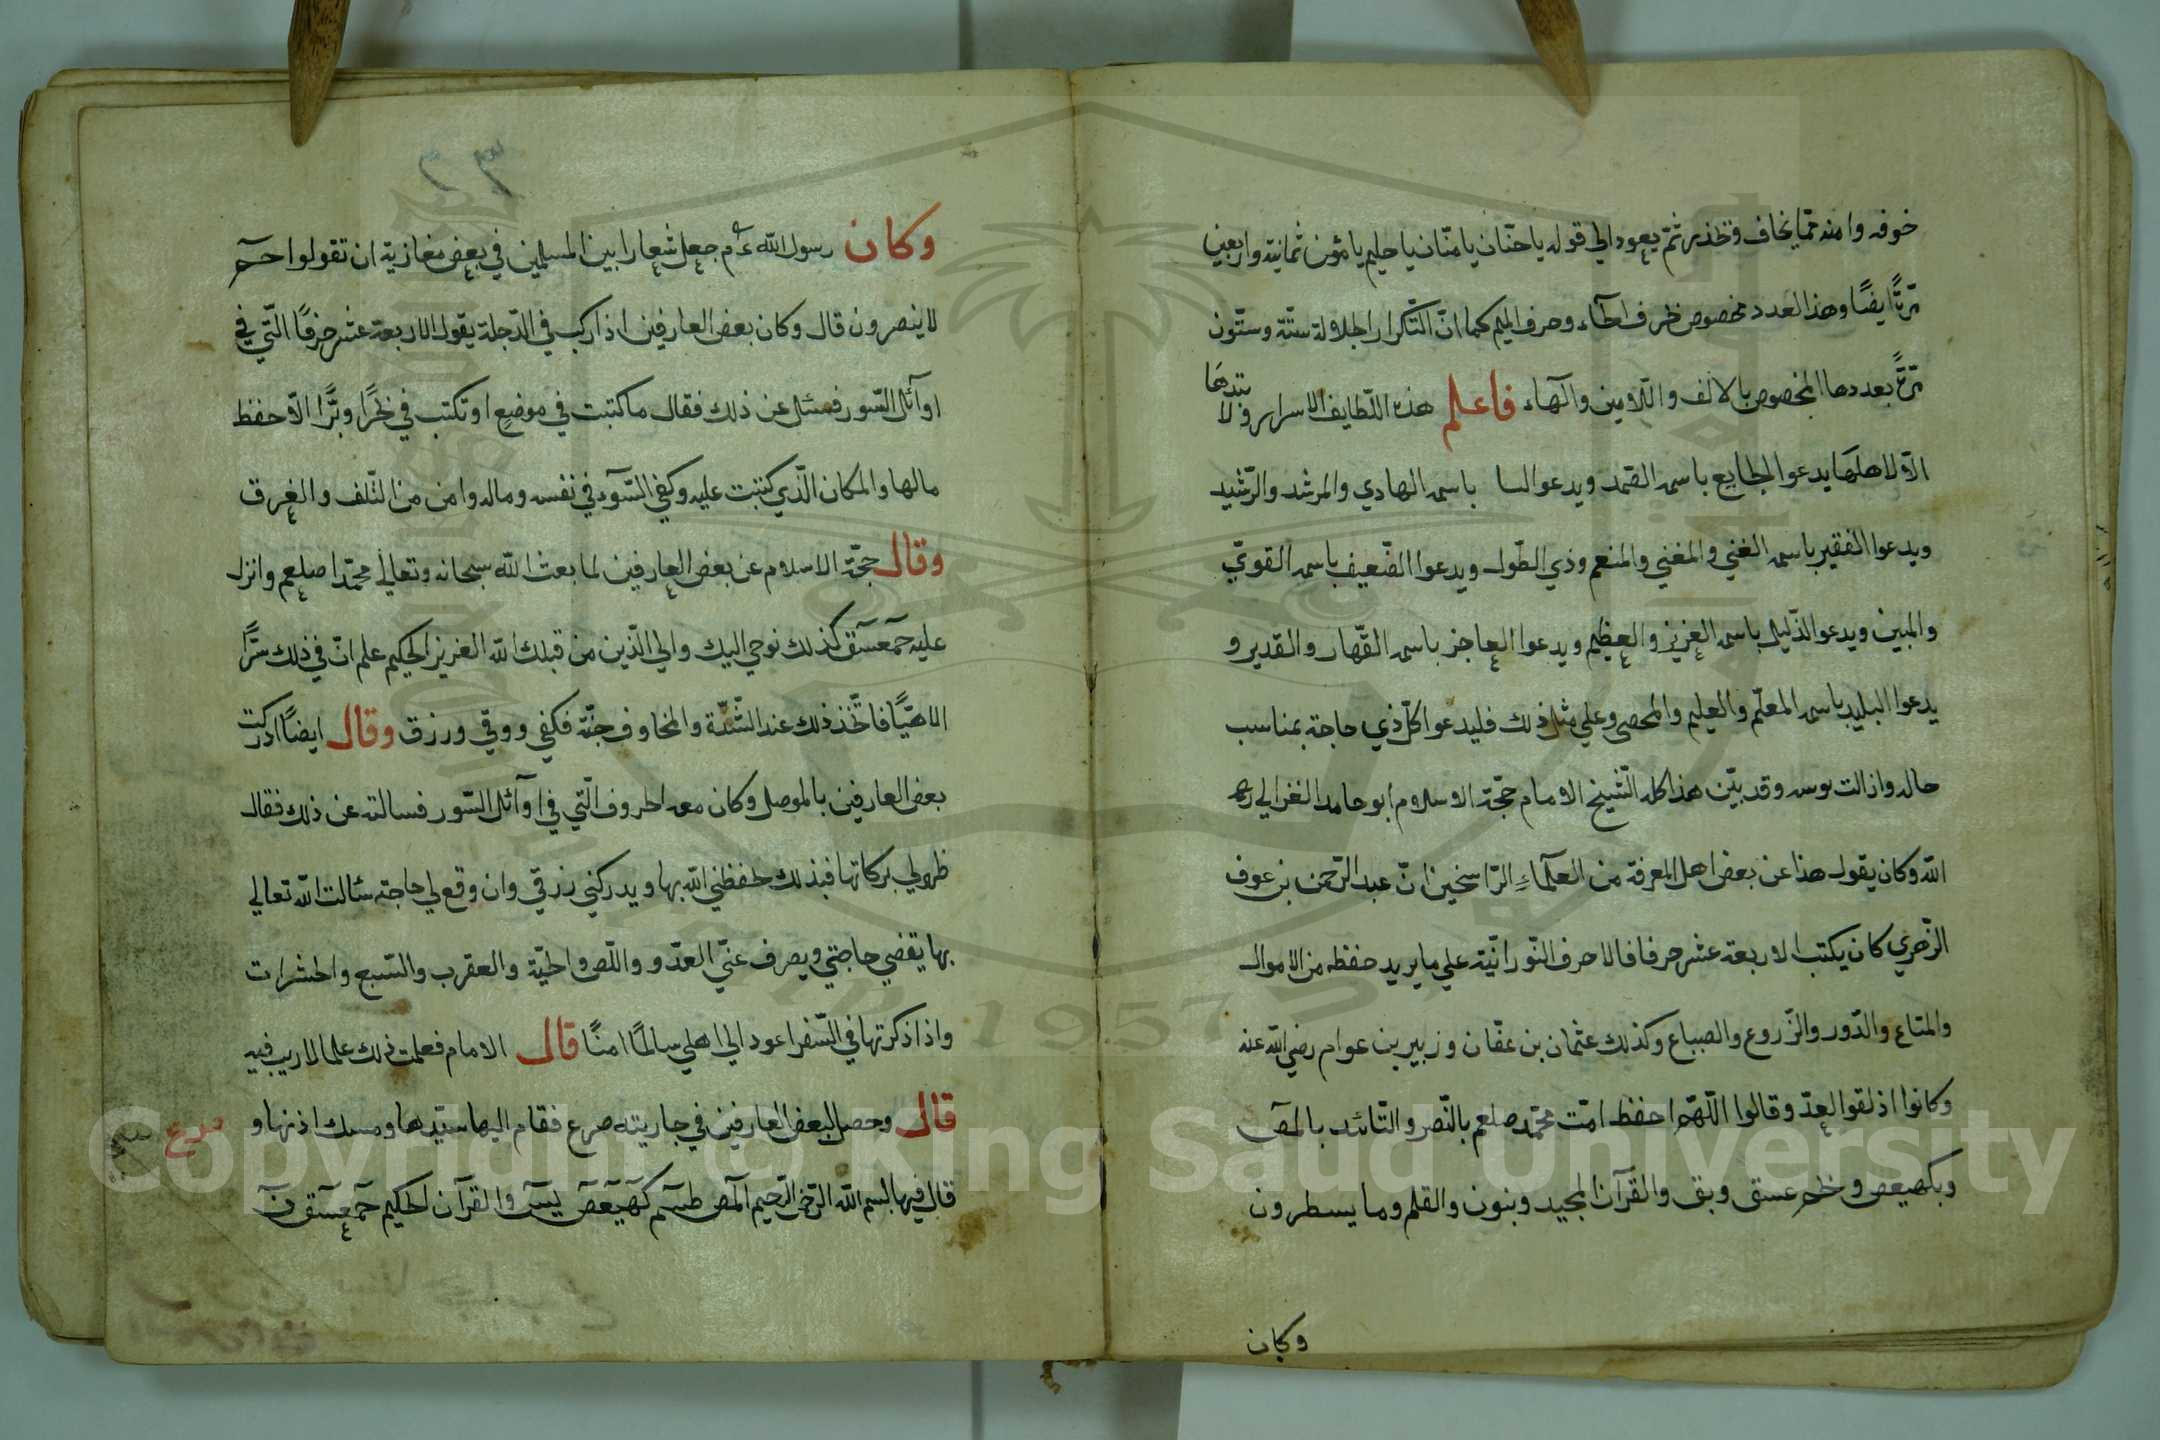 خوفه وامنه ممّا يخاف ويحذر ثمّ يعود الي قوله يا حنّان يا منّان يا حليم يا مؤمن ثمانية واربعين
مرّةً ايضًا وهذا العدد مخصوص بحرف الحآء وحرف الميم كما انّ التّكرار الجلالة ستّة وستّون
مرّةً بعددها المخصوص بالالف واللّامين والهآء فاعلم هذه اللّطايف الاسرار ولا تبدها
الّا لاهلها يدعوا الجايع باسمه الصّمد ويدعوا باسمه الهادي والمرشد والرّشيد
ويدعوا الفقير باسمه الغني والمغني والمنعم وذي الطّول ويدعوا الضّعيف باسمه القويّ
والمبين ويدعوا الذّليل باسمه العزيز والعظيم ويدعوا العاجز باسمه القهّار والقدير و
يدعوا البليد باسمه المعلّم والعليم والمحصي وعلي مثل ذلك فليدعوا كلّ ذي حاجة بمناسب
حاله وازالت بوسه وقد بيّن هذا كله الشّيخ الامام حجّة الاسلام ابو حامد الغزالي رحمه
الله وكان يقول هذا عن بعض اهل المعرفة من العلمآء الرّاسخين انّ عبد الرّحمن بن عوف
الزّهري كان يكتب الاربعة عشر حرفا فالاحرف النّورانيّة علي ما يريد حفظه من الاموال
والمتاع والدّور والزّروع والضياع وكذلك عثمان بن عفّان وزبير بن عوام رضي الله عنه
وكانوا اذ لقوا العدّو قالوا اللّهمّ احفظ امّت محمّد صلعم بالنّصر والتّائيد بالمص
وبكهيعص وبحم عسق وبق والقرآن المجيد وبنون والقلم وما يسطرون
وكان
32
وكان رسول الله ءم جعل شعارا بين المسلمين في بعض مغازيه ان تقولوا حم
لا ينصرون قال وكان بعض العارفين اذا ركب في الدّجلة يقول الاربعة عشر حرفًا الّتي في
اوآئل السّور فسئل عن ذلك فقال ما كتبت في موضعٍ او تكتب في بحرًا وبرًّا الّا حفظ
مالها والمكان الّذي كتبت عليه وكفي السّوء في نفسه وماله وامن من التّلف والغرق
وقال حجّة الاسلام عن بعض العارفين لما بعث الله سبحانه وتعالي محمّدا صلعم وانزل
عليه حمعسق كذلك نوحي اليك والي الّذين من قبلك الله العزيز الحكيم علم انّ في ذلك سرًّا
الاهيًّا فاتّخذ ذلك عند الشّدّة والمخاوف جنّة فكفي ووقي ورزق وقال ايضًا ادركت
بعض العارفين بالموصل وكان معه الحروف الّتي في اوآئل السّور فسالته عن ذلك فقال
ظهر لي بركاتها فبذلك يحفظني الله بها ويدركني رزقي وان وقع لي حاجة سئالت الله تعالي
بها يقضي حاجتي ويصرف عنّي العدّو واللّص والحيّة والعقرب والسّبع والحشرات
واذا ذكرتها في السّفر اعود الي اهلي سالمًا امنًا قال الامام فعلمت ذلك علما لا ريب فيه
قال وحصل لبعض العارفين في جاريته صرع فقام اليها سيّدها ومسك اذنها و
صرع
قال فيها بسم الله الرّحمن الرّحيم المص طسم كهيعص يس والقرآن الحكيم حمعسق ن
Copyright © King Saud University
1957